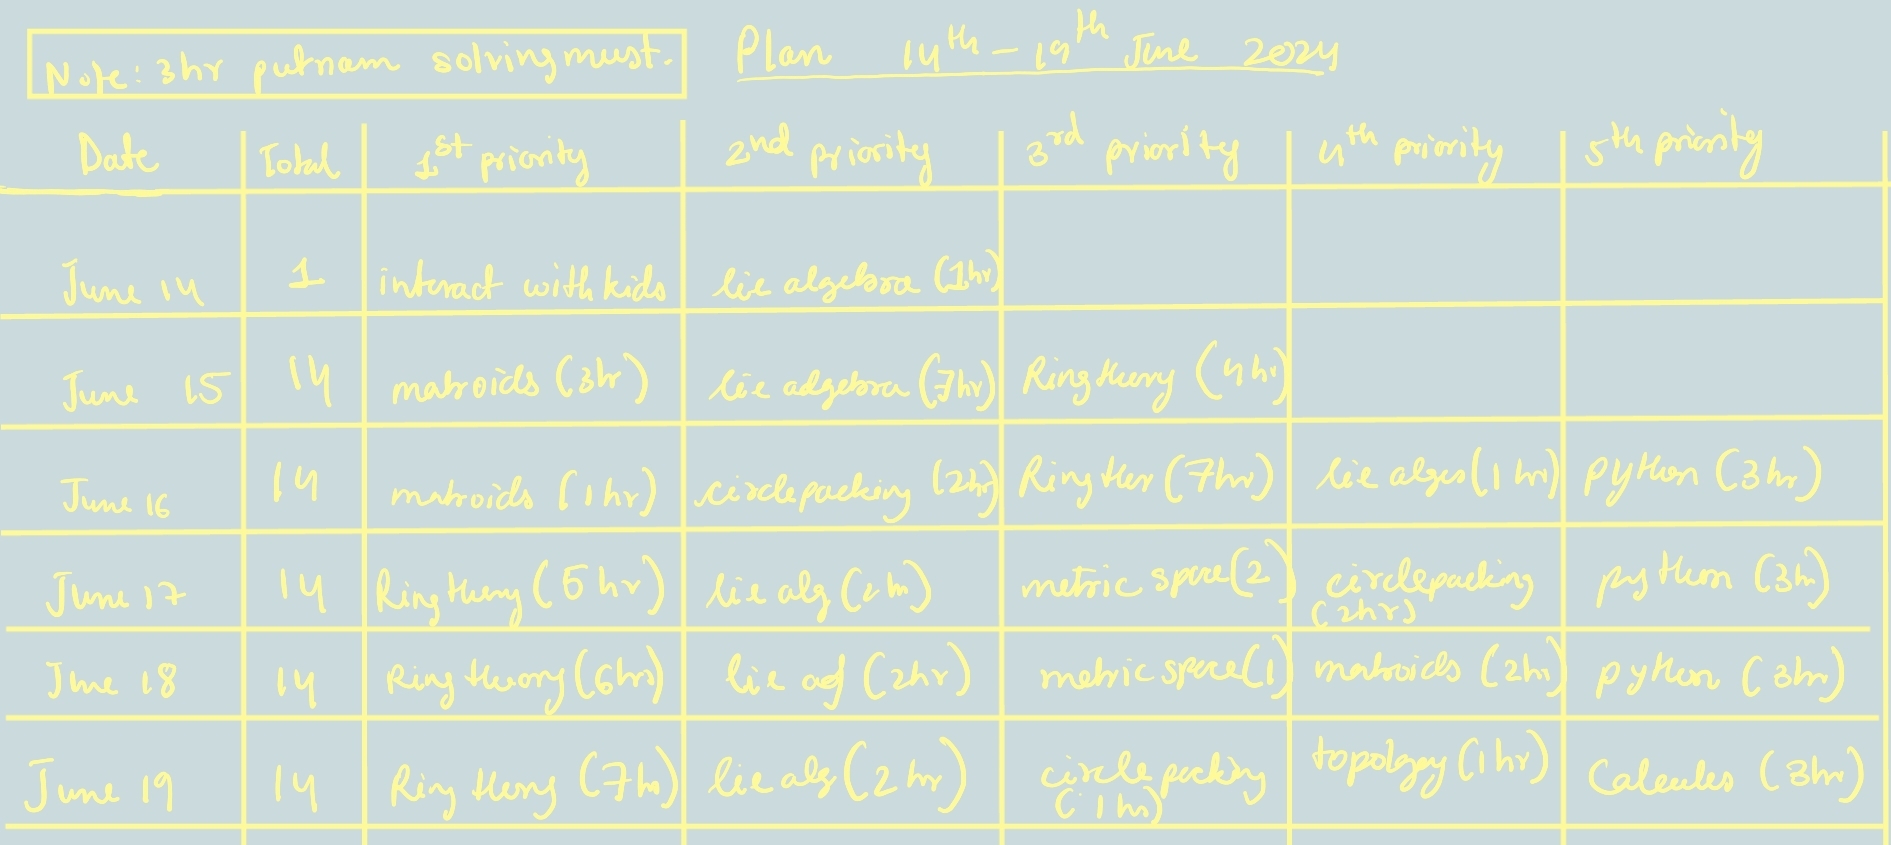 Note: 3hr putnam solving must.
Plan 14th - 19th June 2024
Date Total 1st priority 2nd priority 3rd priority 4th priority 5th priority
June 14 1 interact with kids lie algebra (1hr)
June 15 14 matroids (3hr) lie adgebra (7hr) Ring theory (4hr)
June 16 14 matroids (1hr) circlepacking (2hr) Ring ther (7hr) lie alges (1hr) python (3hr)
June 17 14 Ring theory (5hr) lie alg (2hr) metric space (2) circlepacking python (3hr)
(2hr)
June 18 14 Ring theory (6hrs) lie (2hr) metric space (1) matroids (2hr) python (3hr)
June 19 14 Ring theory (7hr) lie alg (2hr) circle packing topology (1hr) Calculus (3hr)
(1hr)